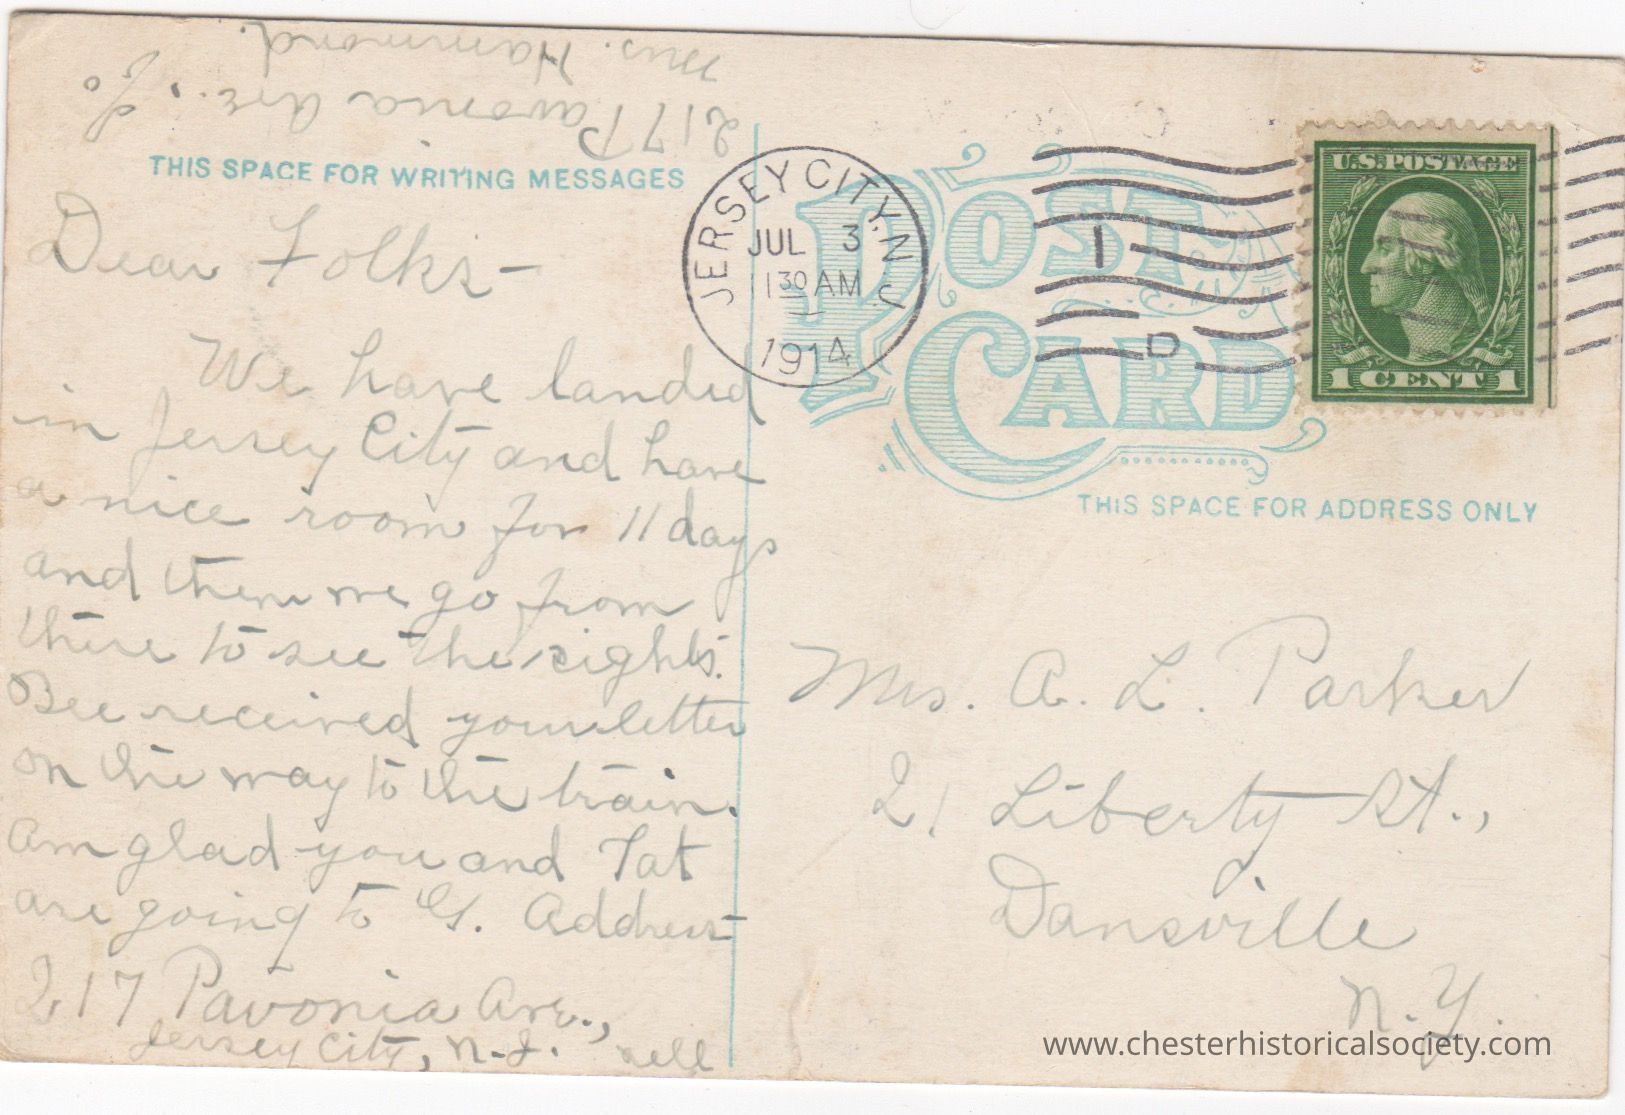 Mrs. Hammond.
217 Pavonia Ave.,
THIS SPACE FOR WRITING MESSAGES
Dear Folks-
We have landed
in Jersey City and have
a nice room for 11 days
and then we go from
there to see the sights.
Bee received your letter
on the way to the train.
Am glad you and Tat
are going to G. Address-
217 Pavonia Ave.,
Jersey City, N.J.
JERSEY CITY, N.J.
JUL 3
1 30 AM
1914
1
D
U.S. POSTAGE
1 CENT 1
POST CARD
THIS SPACE FOR ADDRESS ONLY
Mrs. A. L. Parker
21 Liberty St.,
Dansville
N.Y.
www.chesterhistoricalsociety.com